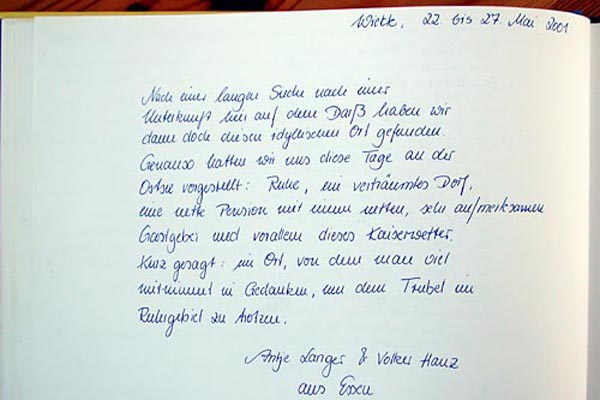 Wieck, 22. bis 27. Mai 2001
Nach einer langen Suche nach einer
Unterkunft hier auf dem Darß haben wir
dann doch diesen idyllischen Ort gefunden.
Genauso hatten wir uns diese Tage an der
Ostsee vorgestellt: Ruhe, ein verträumtes Dorf,
eine nette Pension mit einem netten, sehr aufmerksamen
Gastgeber und vorallem dieses Kaiserwetter.
Kurz gesagt: ein Ort, von dem man viel
mitnimmt in Gedanken, um dem Trubel im
Ruhrgebiet zu trotzen.
Antje Langer & Volker Hanz
aus Essen